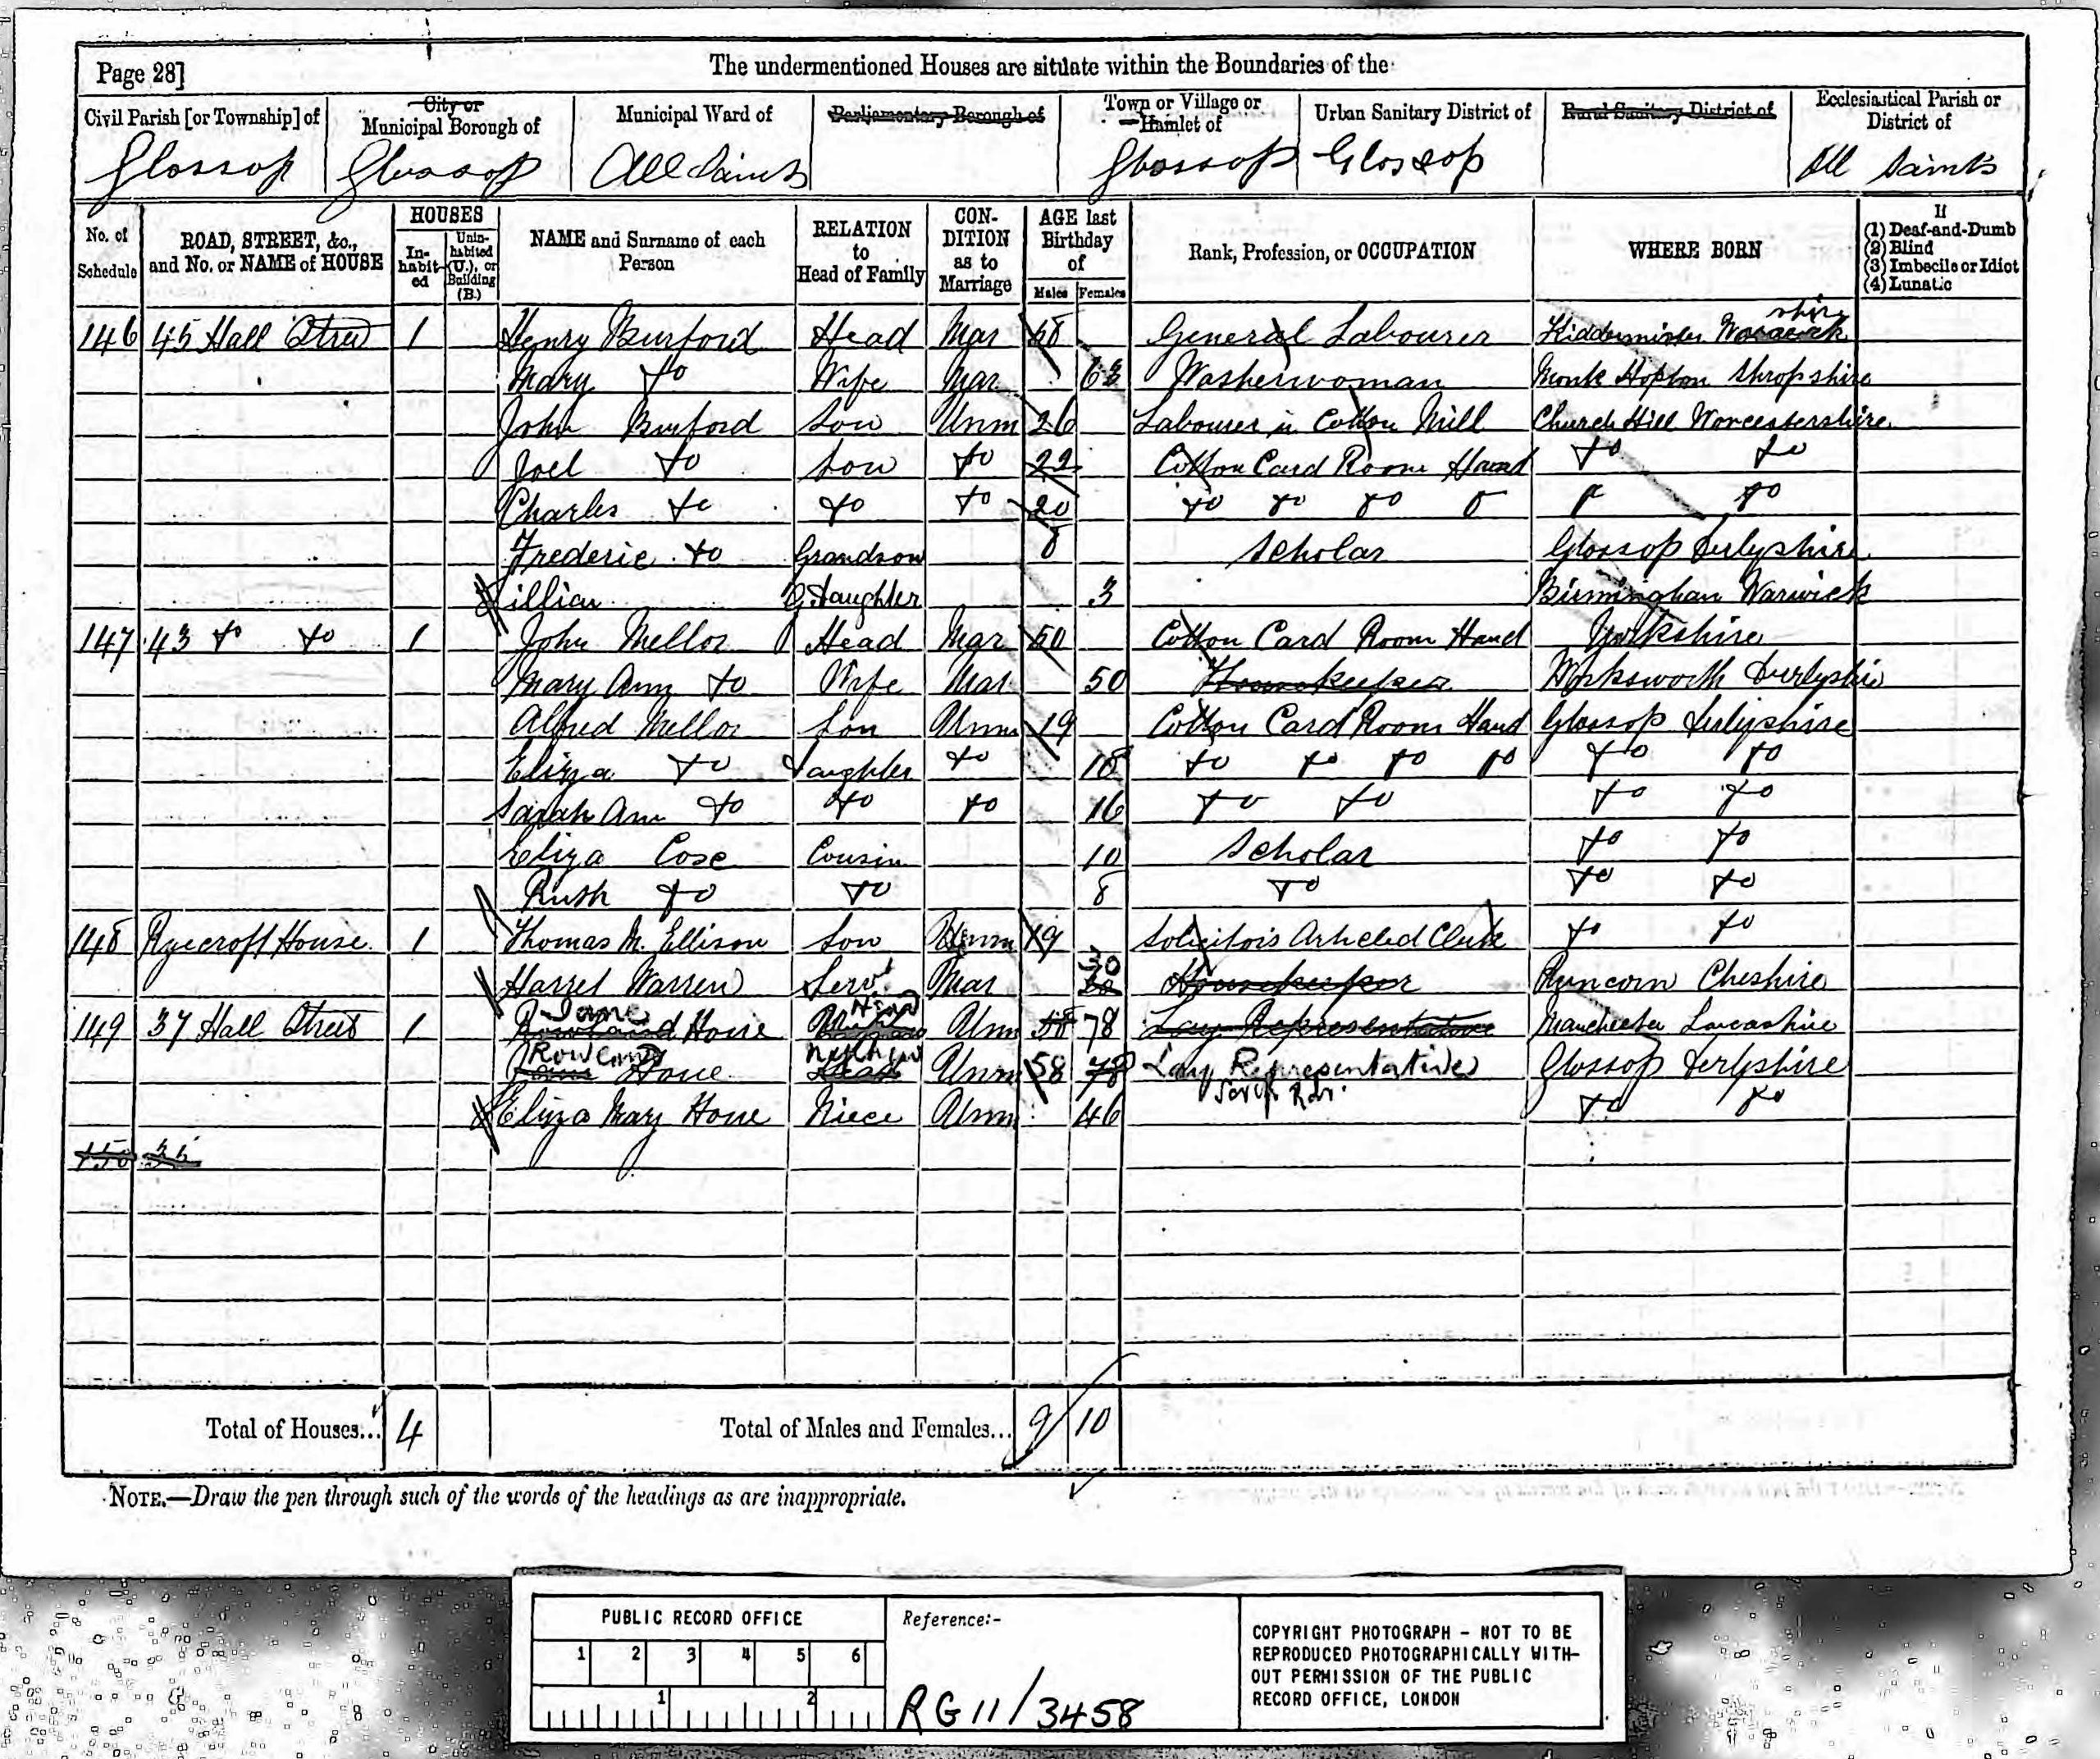 Page 28]
The undermentioned Houses are situate within the Boundaries of the
Civil Parish [or Township] of
City or Municipal Borough of
Municipal Ward of
Parliamentary Borough of
Town or Village or Hamlet of
Urban Sanitary District of
Rural Sanitary District of
Ecclesiastical Parish or District of
Glossop Glossop All Saints Glossop Glossop All Saints
No. of Schedule
ROAD, STREET, &c., and No. or NAME of HOUSE
HOUSES
Inhabited
Uninhabited (U.), or Building (B.)
NAME and Surname of each Person
RELATION to Head of Family
CONDITION as to Marriage
AGE last Birthday of
Males Females
Rank, Profession, or OCCUPATION
WHERE BORN
If
(1) Deaf-and-Dumb
(2) Blind
(3) Imbecile or Idiot
(4) Lunatic
146 45 Hall Street 1 Henry Burford Head Mar 68 General Labourer Kidderminster shire
Mary Do Wife Mar 63 Washerwoman Monk Hopton Shropshire
John Burford Son Unm 26 Labourer in Cotton Mill Church Hill Worcestershire
Joel Do Son Do 22 Cotton Card Room Hand Do Do
Charles Do Do Do 20 Do Do Do Do Do Do
Frederic Do Grandson 8 Scholar Glossop Derbyshire
Lillian G. Daughter 3 Birmingham Warwick
147 43 Do Do 1 John Mellor Head Mar 50 Cotton Card Room Hand Yorkshire
Mary Ann Do Wife Mar 50 Housekeeper Wirksworth Derbyshire
Alfred Mellor Son Unm 19 Cotton Card Room Hand Glossop Derbyshire
Eliza Do Daughter Do 18 Do Do Do Do Do Do
Sarah Ann Do Do Do 16 Do Do Do Do
Eliza Cose Cousin 10 Scholar Do Do
Ruth Do Do 8 Do Do Do
148 Ryecroft House 1 Thomas M. Ellison Son Unm 19 Solicitors Articled Clerk Do Do
Harret Warren Servt Mar 30 Housekeeper Runcorn Cheshire
149 37 Hall Street 1 Jane Howe Head Unm 58 78 Lay Representative Manchester Lancashire
Rowland Howe Nephew Unm 58 78 Lay Representative Glossop Derbyshire
Eliza Mary Howe Niece Unm 46 Do Do
150 35
Total of Houses... 4
Total of Males and Females... 9 10
NOTE.—Draw the pen through such of the words of the headings as are inappropriate.
PUBLIC RECORD OFFICE
1 2 3 4 5 6
1 2
Reference:-
RG 11/3458
COPYRIGHT PHOTOGRAPH - NOT TO BE
REPRODUCED PHOTOGRAPHICALLY WITH-
OUT PERMISSION OF THE PUBLIC
RECORD OFFICE, LONDON